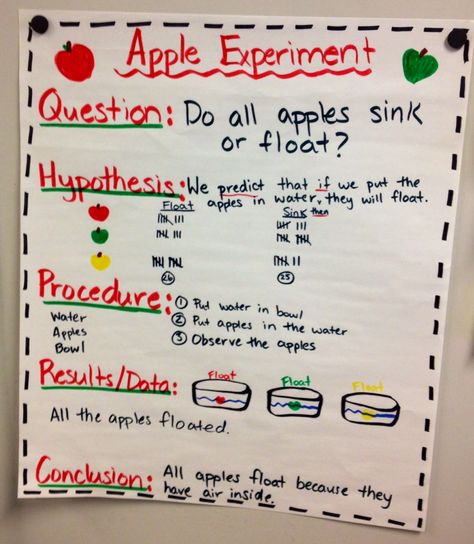 Apple Experiment
Question: Do all apples sink
or float?
Hypothesis: We predict that if we put the
apples in water, then they will float.
Float Sink
卌 III 卌 III
卌 III 卌 卌
卌 卌 卌 II
26 25
Procedure: ① Put water in bowl
Water ② Put apples in the water
Apples ③ Observe the apples
Bowl
Results/Data: Float Float Float
All the apples floated.
Conclusion: All apples float because they
have air inside.